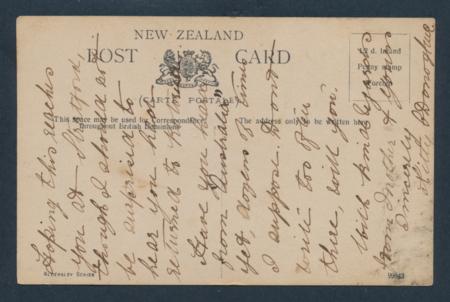 NEW ZEALAND
POST CARD
(CARTE POSTALE)
This space may be used for Correspondence
throughout British Dominions.
The address only to be written here
½d. Inland
Penny stamp
Foreign
Hoping this reaches
you at
though I should not
be surprised to
hear you had
returned to
Have you heard
from "Australia"
yet, dozens of times
I suppose. Don't
write too often
there, will you.
With kind regards
from Mother & yours
Sincerely
Kitty O'Donoghue
SERIES